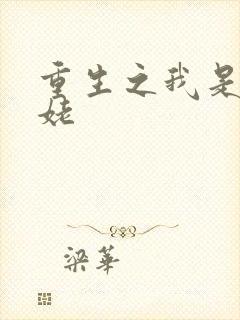 重生之我是
姥
梁華